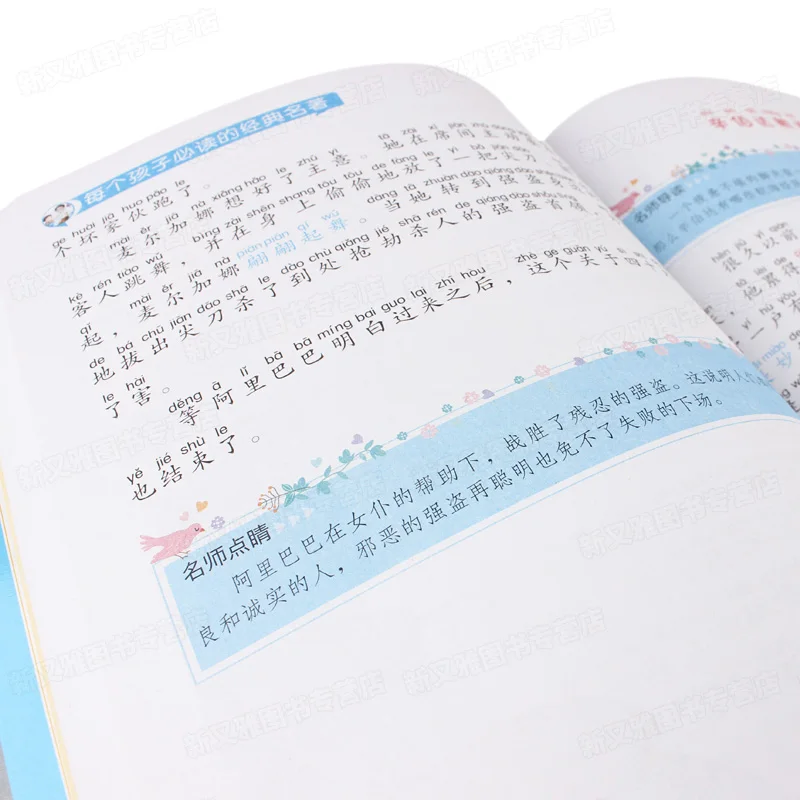 每个孩子必读的经典名著
ge huài jiā huo pǎo le
个坏家伙跑了。
mài ěr jiā nà xiǎng hǎo le zhǔ yi tā zài xí jiān zhǔ dòng
麦尔加娜想好了主意。她在席间主动
kè rén tiào wǔ bìng zài shēn shang tōu tōu de fàng le yì bǎ jiān dāo
客人跳舞，并在身上偷偷地放了一把尖刀
qǐ mài ěr jiā nà piān piān qǐ wǔ dāng tā zhuàn dào qiáng dào shēn
起，麦尔加娜翩翩起舞。当她转到强盗身
de bá chū jiān dāo shā le dào chù qiǎng jié shā rén de qiáng dào shǒu lǐng
地拔出尖刀杀了到处抢劫杀人的强盗首领
le hài
了害。
děng ā lǐ bā bā míng bai guo lai zhī hòu zhè ge guān yú sì
等阿里巴巴明白过来之后，这个关于四
yě jié shù le
也结束了。
名师点睛
阿里巴巴在女仆的帮助下，战胜了残忍的强盗。这说明人们
良和诚实的人，邪恶的强盗再聪明也免不了失败的下场。
名师导读
hěn jiǔ yǐ qián
很久以前
，他累得
一户
新文雅图书专营店